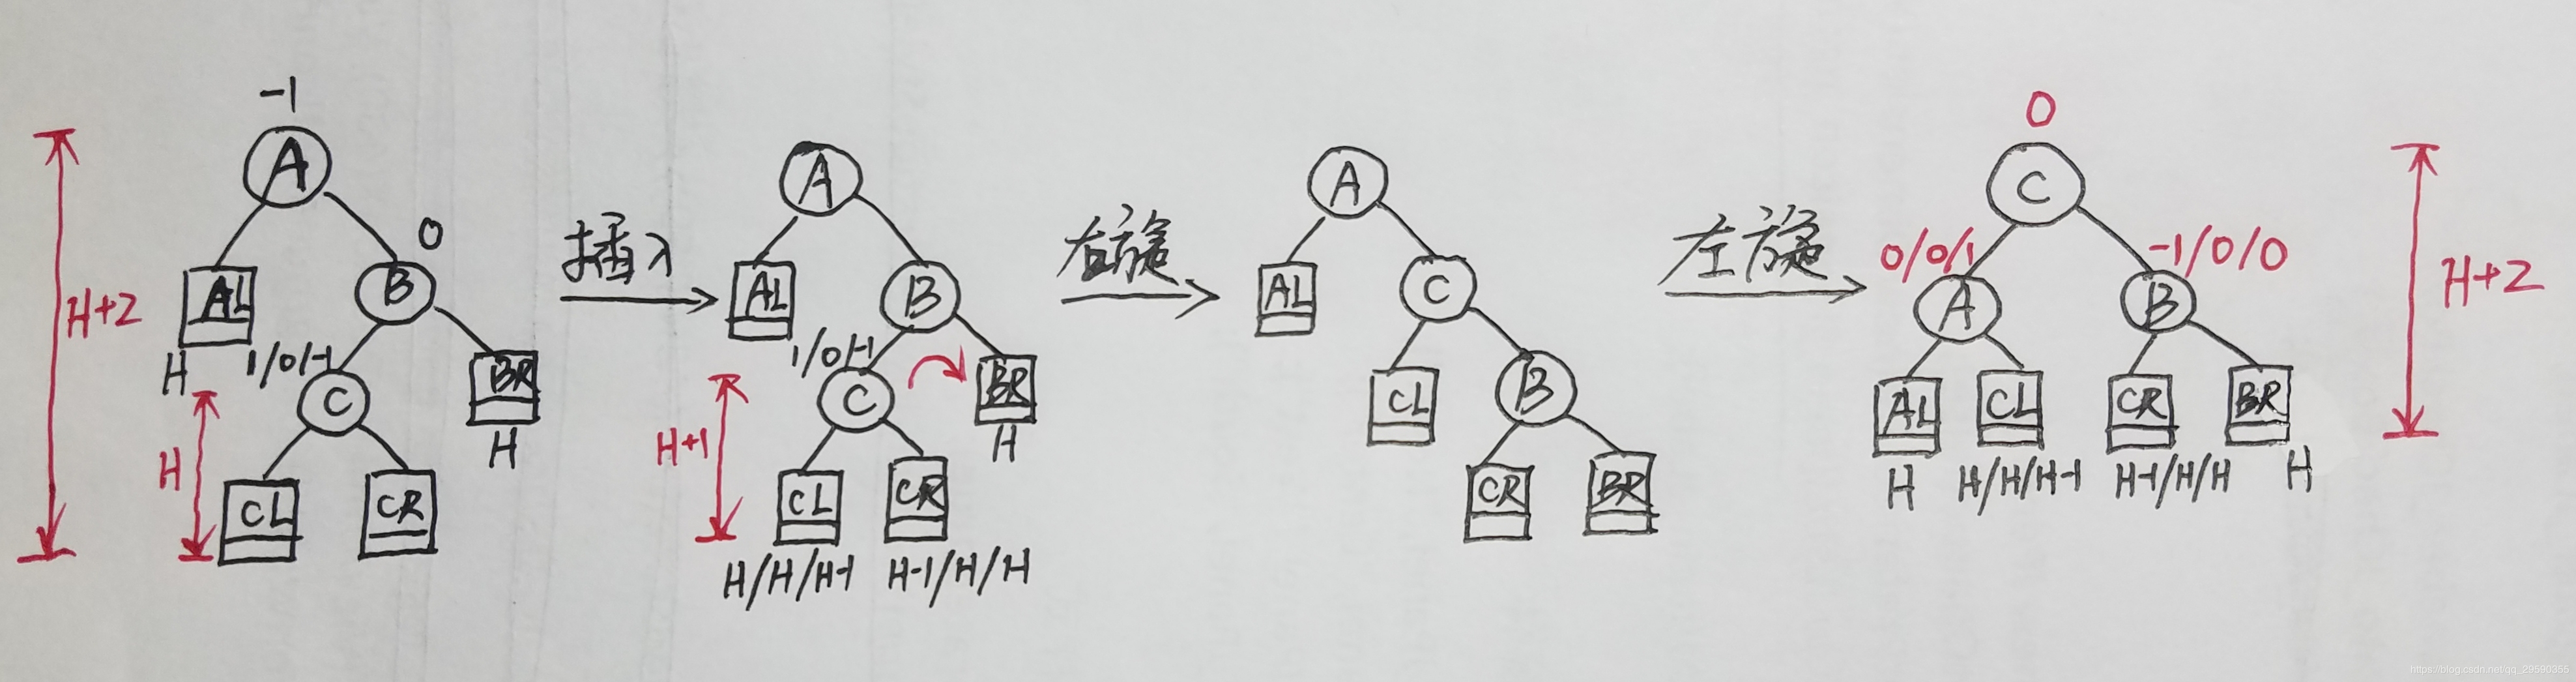 -1
A
0
H+2
AL
B
H
1/0/-1
C
BR
H
H
CL
CR
插入
A
AL
B
1/0/-1
C
BR
H
H+1
CL
CR
H/H/H-1
H-1/H/H
右旋
A
AL
C
CL
B
CR
BR
左旋
0
C
0/0/1
-1/0/0
A
B
H+2
AL
CL
CR
BR
H
H/H/H-1
H-1/H/H
H
https://blog.csdn.net/qq_29590355